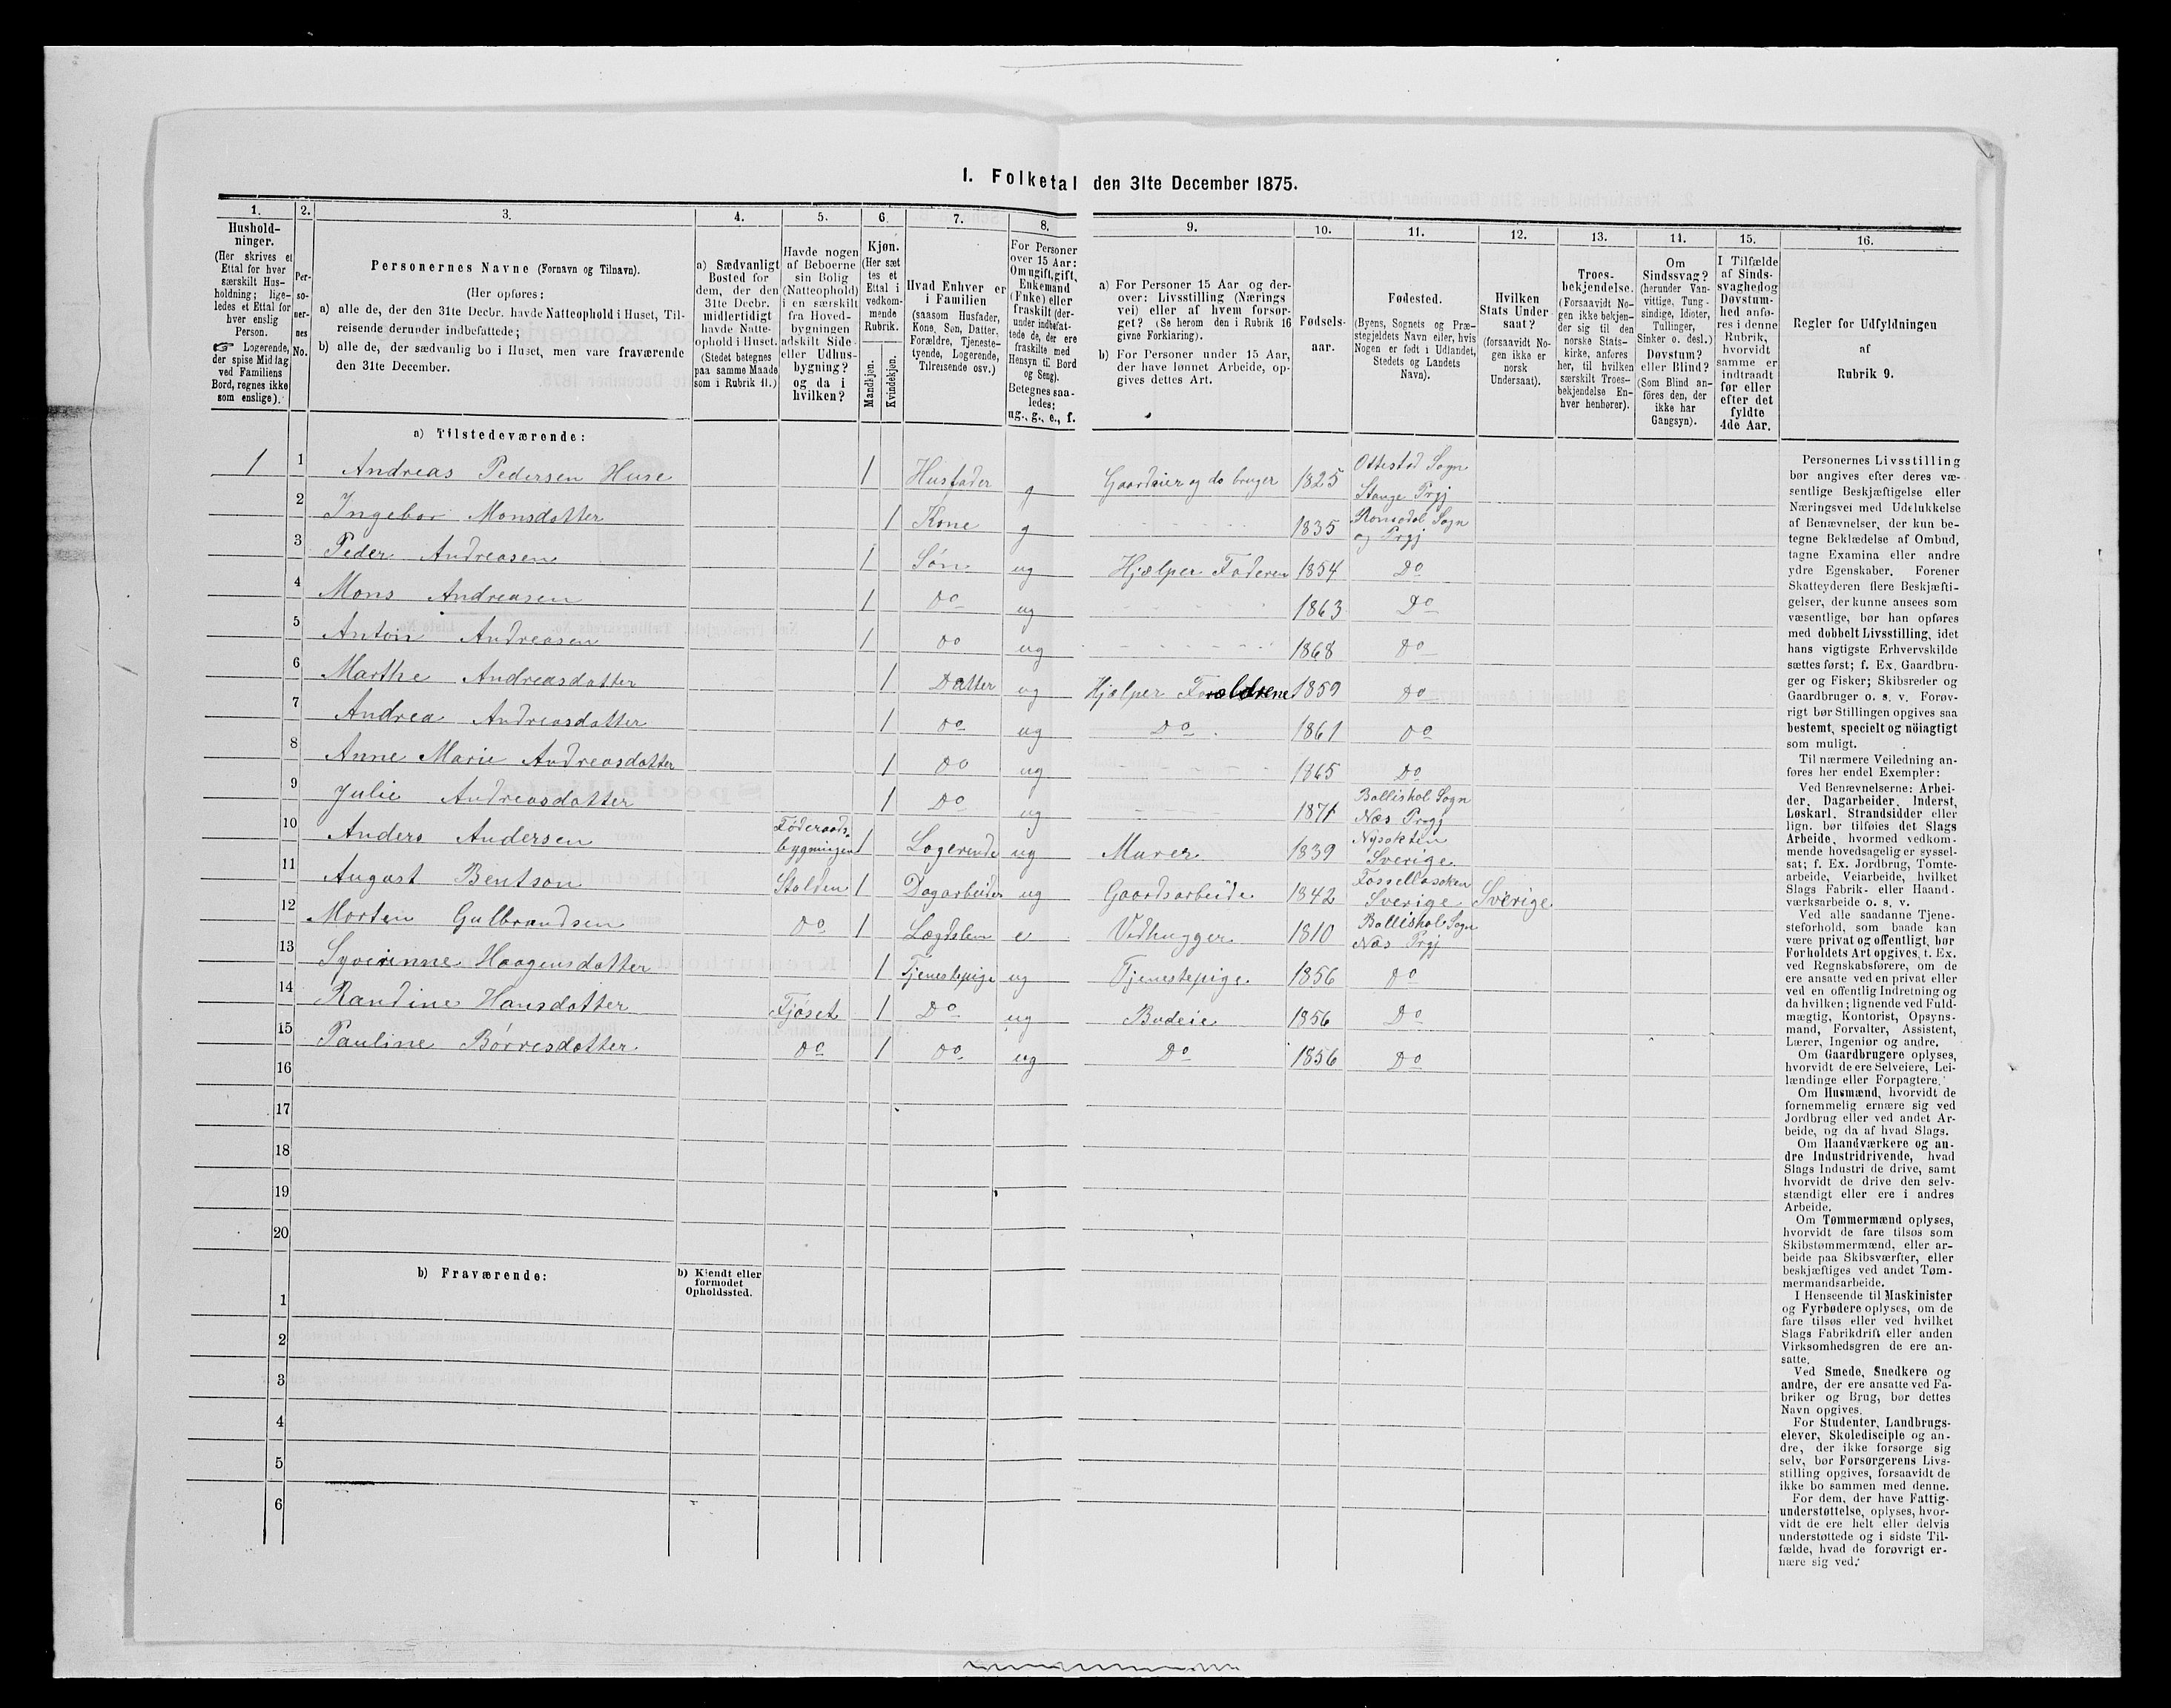 1. Folketal den 31te December 1875.
1. 2. 3. 4. 5. 6. 7. 8. 9. 10. 11. 12. 13. 14. 15. 16.
Hushold-
ninger.
(Her skrives et
Ettal for hver
særskilt Hus-
holdning; lige-
ledes et Ettal for
hver enslig
Person.
☞ Logerende,
der spise Middag
ved Familiens
Bord, regnes ikke
som enslige).
Per-
so-
ner-
nes
No.
Personernes Navne (Fornavn og Tilnavn).
(Her opføres:
a) alle de, der den 31te Decbr. havde Natteophold i Huset, Til-
reisende derunder indbefattede;
b) alle de, der sædvanlig bo i Huset, men vare fraværende
den 31te December.
a) Sædvanligt
Bosted for
dem, der den
31te Decbr.
midlertidigt
havde Natte-
ophold i Huset.
(Stedet betegnes
paa samme Maade
som i Rubrik 11.)
Havde nogen
af Beboerne
sin Bolig
(Natteophold)
i en særskilt
fra Hoved-
bygningen
adskilt Side-
eller Udhus-
bygning?
og da i
hvilken?
Kjøn.
(Her sæt
tes et
Ettal i
vedkom-
mende
Rubrik.
Mandkjøn.
Kvindekjøn.
Hvad Enhver er
i Familien
(saasom Husfader,
Kone, Søn, Datter,
Forældre, Tjeneste-
tyende, Logerende,
Tilreisende osv.)
For Personer
over 15 Aar:
Om ugift, gift,
Enkemand
(Enke) eller
fraskilt (der-
under indbefat-
tede de, der ere
fraskilte med
Hensyn til Bord
og Seng).
Betegnes saa-
ledes:
ug., g., e., f.
a) For Personer 15 Aar og der-
over: Livsstilling (Nærings
vei) eller af hvem forsør-
get? (Se herom den i Rubrik 16
givne Forklaring).
b) For Personer under 15 Aar,
der have lønnet Arbeide, op-
gives dettes Art.
Fødsels-
aar.
Fødested.
(Byens, Sognets og Præ-
stegjeldets Navn eller, hvis
Nogen er født i Udlandet,
Stedets og Landets
Navn).
Hvilken
Stats Under
saat?
(forsaavidt No-
gen ikke er
norsk
Undersaat).
Troes-
bekjendelse.
(Forsaavidt No-
gen ikke bekjen-
der sig til den
norske Stats-
kirke, anføres
her, til hvilken
særskilt Troes-
bekjendelse En-
hver henhører).
Om
Sindssvag?
(herunder Van-
vittige, Tung-
sindige, Idioter,
Tullinger,
Sinker o. desl.)
Døvstum?
eller Blind?
(Som Blind an-
føres den, der
ikke har
Gangsyn).
I Tilfælde
af Sinds-
svaghed og
Døvstum-
hed anfø-
res i denne
Rubrik,
hvorvidt
samme er
indtraadt
før eller
efter det
fyldte
4de Aar.
Regler for Udfyldningen
af
Rubrik 9.
a) Tilstedeværende:
1 1 Andreas Pedersen Huse 1 Husfader g Gaardeier og do bruger 1825 Ottestad Sogn Stange Prgj
2 Ingebor Monsdatter 1 Kone g 1835 Romedal Sogn og Prgj
3 Peder Andreasen 1 Søn ug Hjælper Faderen 1854 Do
4 Mons Andreasen 1 Do ug 1863 Do
5 Anton Andreasen 1 Do ug 1868 Do
6 Marthe Andreasdatter 1 Datter ug Hjælper Forældrene 1859 Do
7 Andrea Andreasdatter 1 Do ug Do 1861 Do
8 Anne Marie Andreasdatter 1 Do ug 1865 Do
9 Julie Andreasdatter 1 Do ug 1871 Ballishol Sogn Næs Prgj
10 Anders Andersen Føderaads- bygningen 1 Logerende ug Murer 1839 Sverige
11 August Bentson Stalden 1 Dagarbeider ug Gaardsarbeide 1842 Sverige Sverige
12 Morten Gulbrandsen Do 1 Lægdslem e Vedhugger 1810 Ballishol Sogn Næs Prgj
13 Syverinne Haagensdatter 1 Tjenestepige ug Tjenestepige 1856 Do
14 Randine Hansdatter Fjøset 1 Do ug Budeie 1856 Do
15 Pauline Børresdatter Do 1 Do ug Do 1856 Do
16
17
18
19
20
b) Fraværende:
b) Kjendt eller
formodet
Opholdssted.
1
2
3
4
5
6
Personernes Livsstilling
bør angives efter deres væ-
sentlige Beskjæftigelse eller
Næringsvei med Udelukkelse
af Benævnelser, der kun be-
tegne Beklædelse af Ombud,
tagne Examina eller andre
ydre Egenskaber. Forener
Skatteyderen flere Beskjæfti-
gelser, der kunne ansees som
væsentlige, bør han opføres
med dobbelt Livsstilling, idet
hans vigtigste Erhvervskilde
sættes først; f. Ex. Gaardbru-
ger og Fisker; Skibsreder og
Gaardbruger o. s. v. Forøv-
rigt bør Stillingen opgives saa
bestemt, specielt og nöiagtigt
som muligt.
Til nærmere Veiledning an-
føres her endel Exempler:
Ved Benævnelserne: Arbei-
der, Dagarbeider, Inderst,
Løskarl, Strandsidder eller
lign. bør tilføies det Slags
Arbeide, hvormed vedkom-
mende hovedsagelig er syssel-
sat; f. Ex. Jordbrug, Tomte-
arbeide, Veiarbeide, hvilket
Slags Fabrik- eller Haand-
værksarbeide o. s. v.
Ved alle saadanne Tjene-
steforhold, som baade kan
være privat og offentligt, bør
Forholdets Art opgives, t. Ex.
ved Regnskabsførere, om de
ere ansatte ved en privat eller
ved en offentlig Indretning og
da hvilken; lignende ved Fuld-
mægtig, Kontorist, Opsyns-
mand, Forvalter, Assistent,
Lærer, Ingeniør og andre.
Om Gaardbrugere oplyses,
hvorvidt de ere Selveiere, Lei-
lændinge eller Forpagtere.
Om Husmænd, hvorvidt de
fornemmelig ernære sig ved
Jordbrug eller ved andet Ar-
beide, og da af hvad Slags.
Om Haandværkere og an-
dre Industridrivende, hvad
Slags Industri de drive, samt
hvorvidt de drive den selv-
stændigt eller ere i andres
Arbeide.
Om Tømmermænd oplyses,
hvorvidt de fare tilsøs som
Skibstømmermænd, eller ar-
beide paa Skibsværfter, eller
beskjæftiges ved andet Tøm-
mermandsarbeide.
I Henseende til Maskinister
og Fyrbødere oplyses, om de
fare tilsøs eller ved hvilket
Slags Fabrikdrift eller anden
Virksomhedsgren de ere an-
satte.
Ved Smede, Snedkere og
andre, der ere ansatte ved Fa-
briker og Brug, bør dettes
Navn opgives.
For Studenter, Landbrugs-
elever, Skoledisciple og an-
dre, der ikke forsørge sig
selv, bør Forsørgerens Livs-
stilling opgives, forsaavidt de
ikke bo sammen med denne.
For dem, der have Fattig-
understøttelse, oplyses, hvor-
vidt de ere helt eller delvis
understøttede og i sidste Til-
fælde, hvad de forøvrigt er-
nære sig ved.